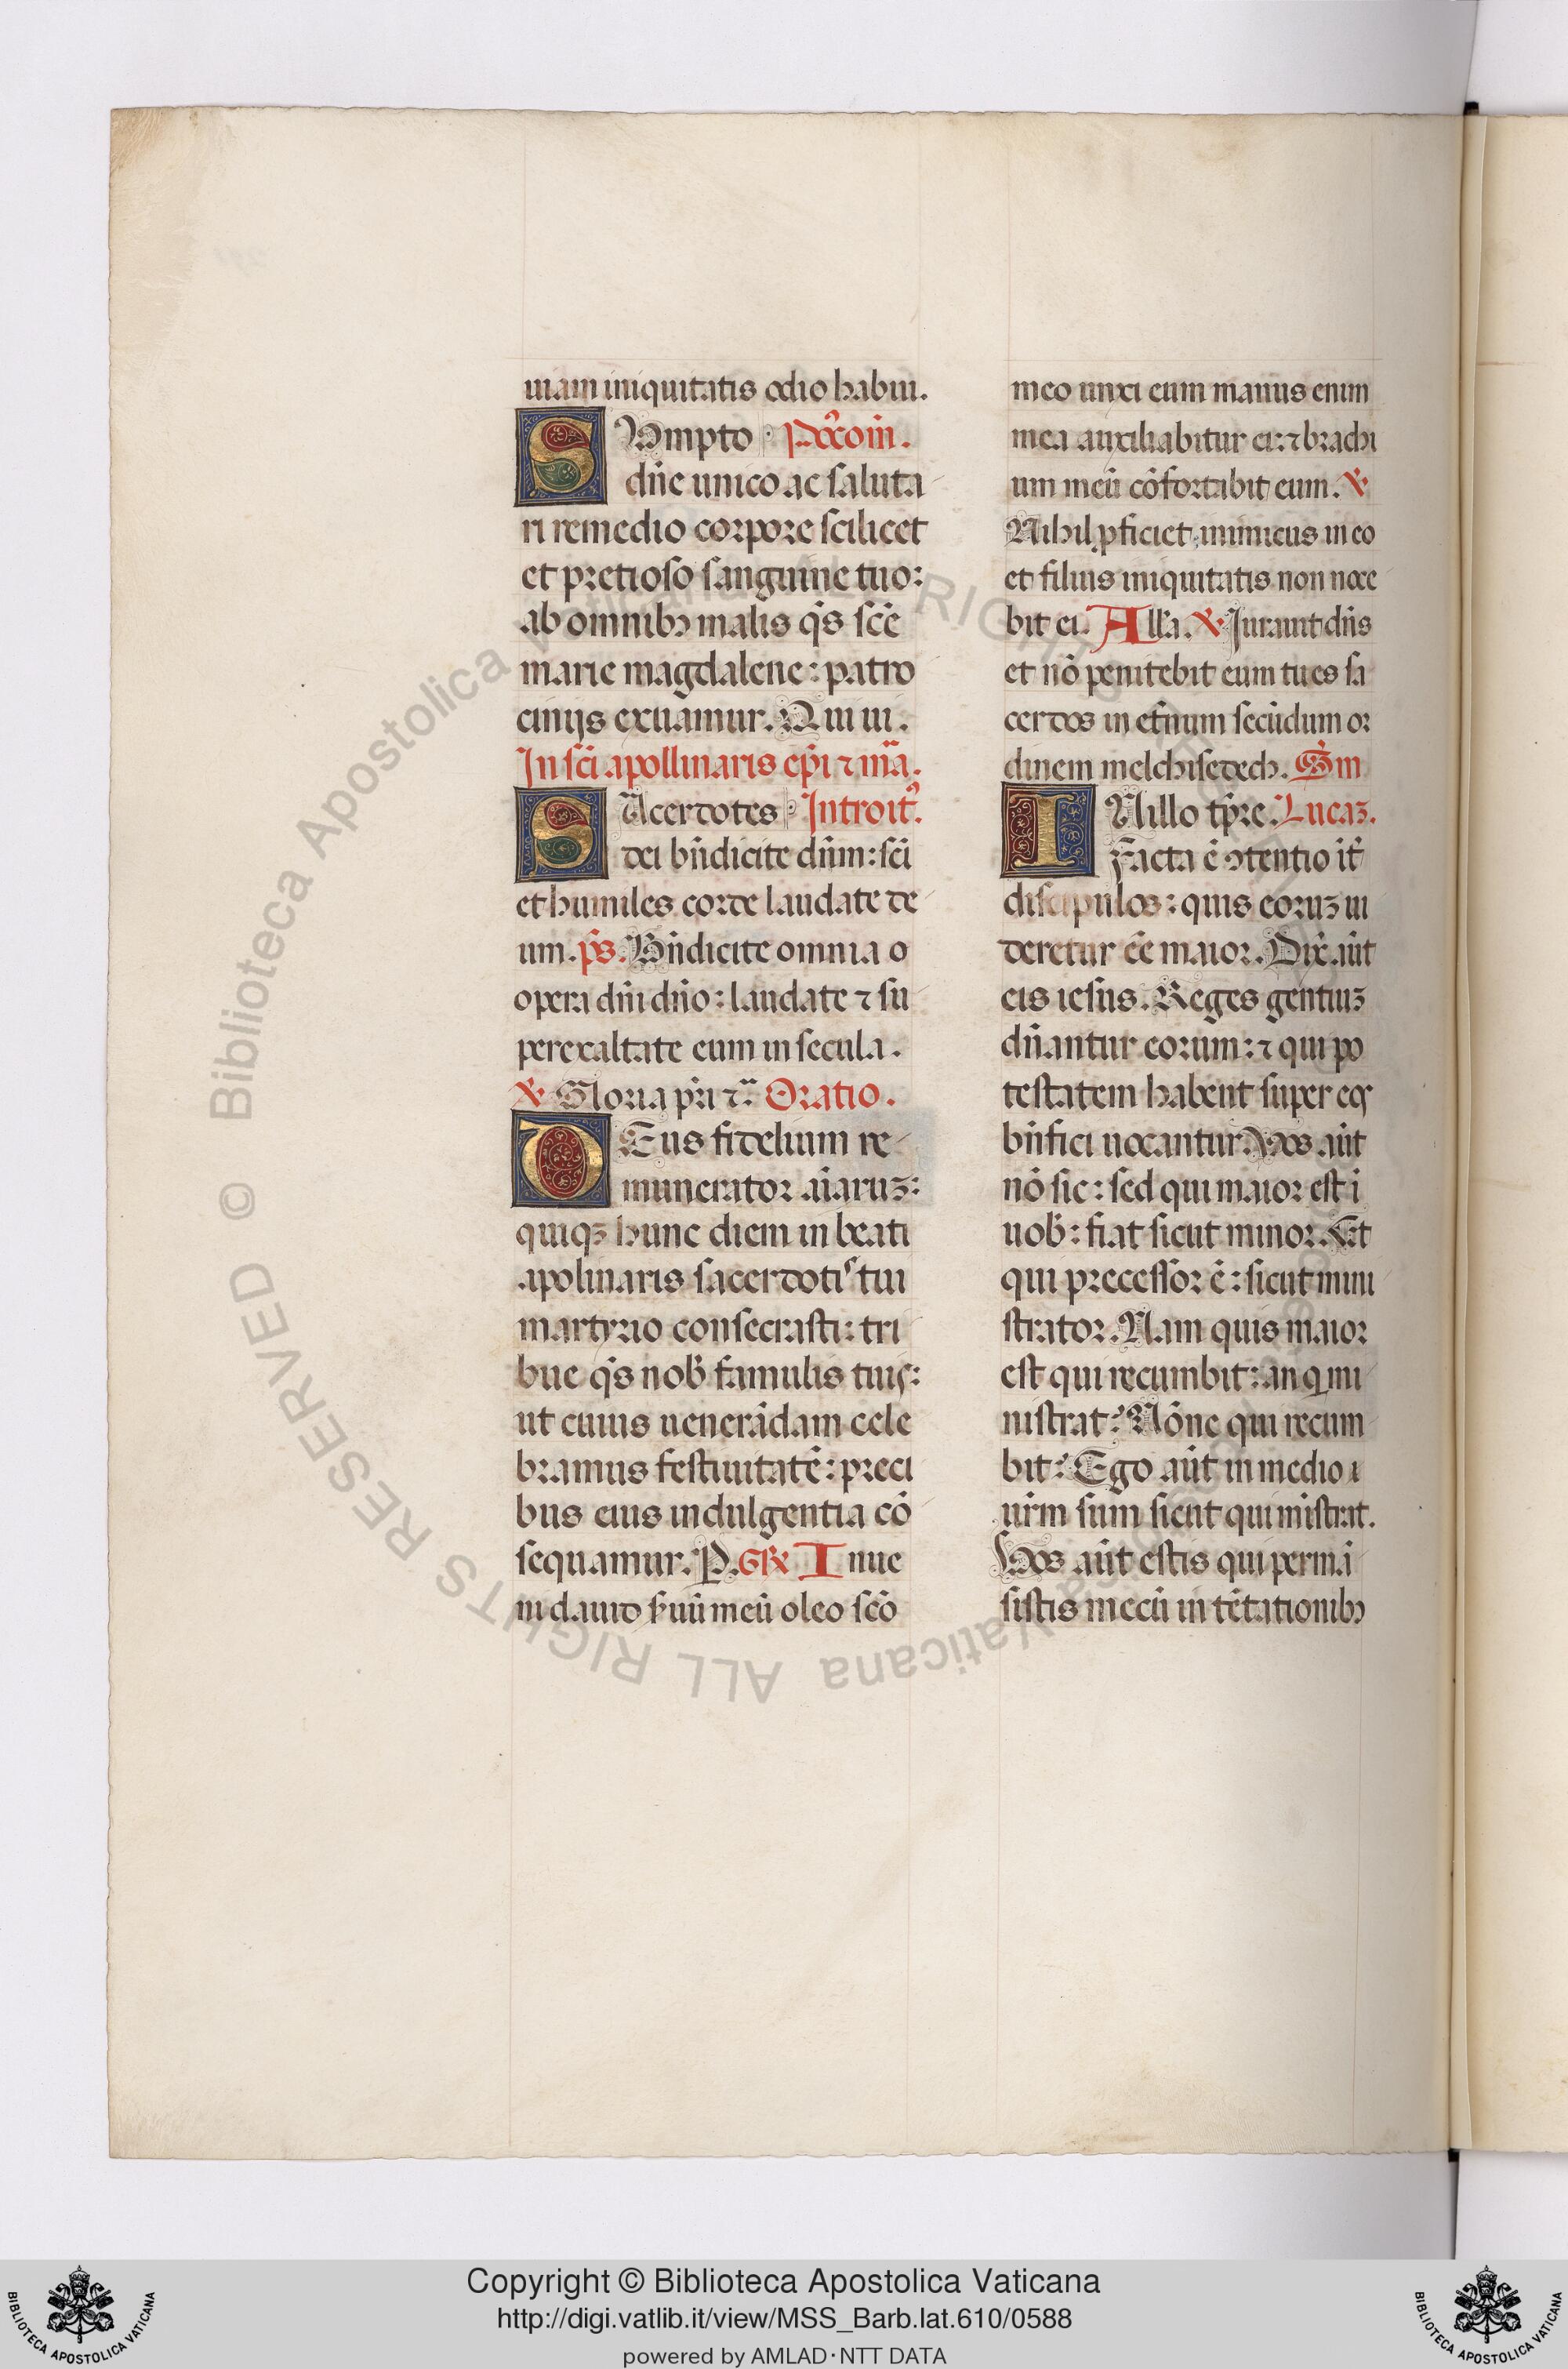 uiam iniquitatis odio habui.
SUmpto Poſtcoīn.
dn̄e unico ac ſaluta
ri remedio corpore ſcilicet
et pretioſo ſanguine tuo:
ab omnibꝫ malis q̄s ſcē
marie magdalene: patro
cinijs exuamur. Q ui ui.
In ſci apollinaris ep̄i ⁊ m̄a.
SAcerdotes Introitꝰ.
dei bn̄dicite dn̄m: ſci
et humiles corde laudate de
um. p̄s. Bn̄dicite omnia o
opera dn̄i dn̄o: laudate ⁊ ſu
perexaltate eum in ſecula.
℣ Gloria pr̄i ⁊c̄ Oratio.
DEus fidelium re
munerator aīaruꝫ:
quiqꝫ hunc diem in beati
apolinaris ſacerdotiſ tui
martyrio conſecraſti: tri
bue q̄s nob̄ famulis tuiſ:
ut cuius uenerādam cele
bramus feſtiuitatē: preci
bus eius indulgentia cō
ſequamur. P. GR̄ I nue
ni dauid ſ̄uū meū oleo ſcō
meo unxi eum manus enim
mea auxiliabitur ei: ⁊ brachi
um meū cōfortabit eum. ℣
Nihil ꝓficiet inimicus in eo
et filius iniquitatis non noce
bit ei. All̄a. ℣ Iurauit dn̄s
et nō penitebit eum tu es ſa
cerdos in et̄num ſecūdum or
dinem melchiſedech. Sm
INillo tp̄re. Lucaꝫ.
Facta ē ꝯtentio īt
diſcipulos: quis eoruꝫ ui
deretur ēē maior. Dix̄ aūt
eis ieſus. Reges gentiuꝫ
dn̄antur eorum: ⁊ qui po
teſtatem habent ſuper eoſ
bn̄fici uocantur. Vos aūt
nō ſic: ſed qui maior eſt ī
uob̄: fiat ſicut minor. Et
qui preceſſor ē: ſicut mini
ſtrator. Nam quis maior
eſt qui recumbit: an q̄ mi
niſtrat? Nōne qui recum
bit? Ego aūt in medio
ur̄m ſum ſicut qui miſtrat.
Vos aūt eſtis qui permā
ſiſtis mecū in tētationibꝫ
© Biblioteca Apostolica Vaticana ALL RIGHTS RESERVED
Copyright © Biblioteca Apostolica Vaticana
http://digi.vatlib.it/view/MSS_Barb.lat.610/0588
powered by AMLAD·NTT DATA
BIBLIOTECA APOSTOLICA VATICANA
BIBLIOTECA APOSTOLICA VATICANA